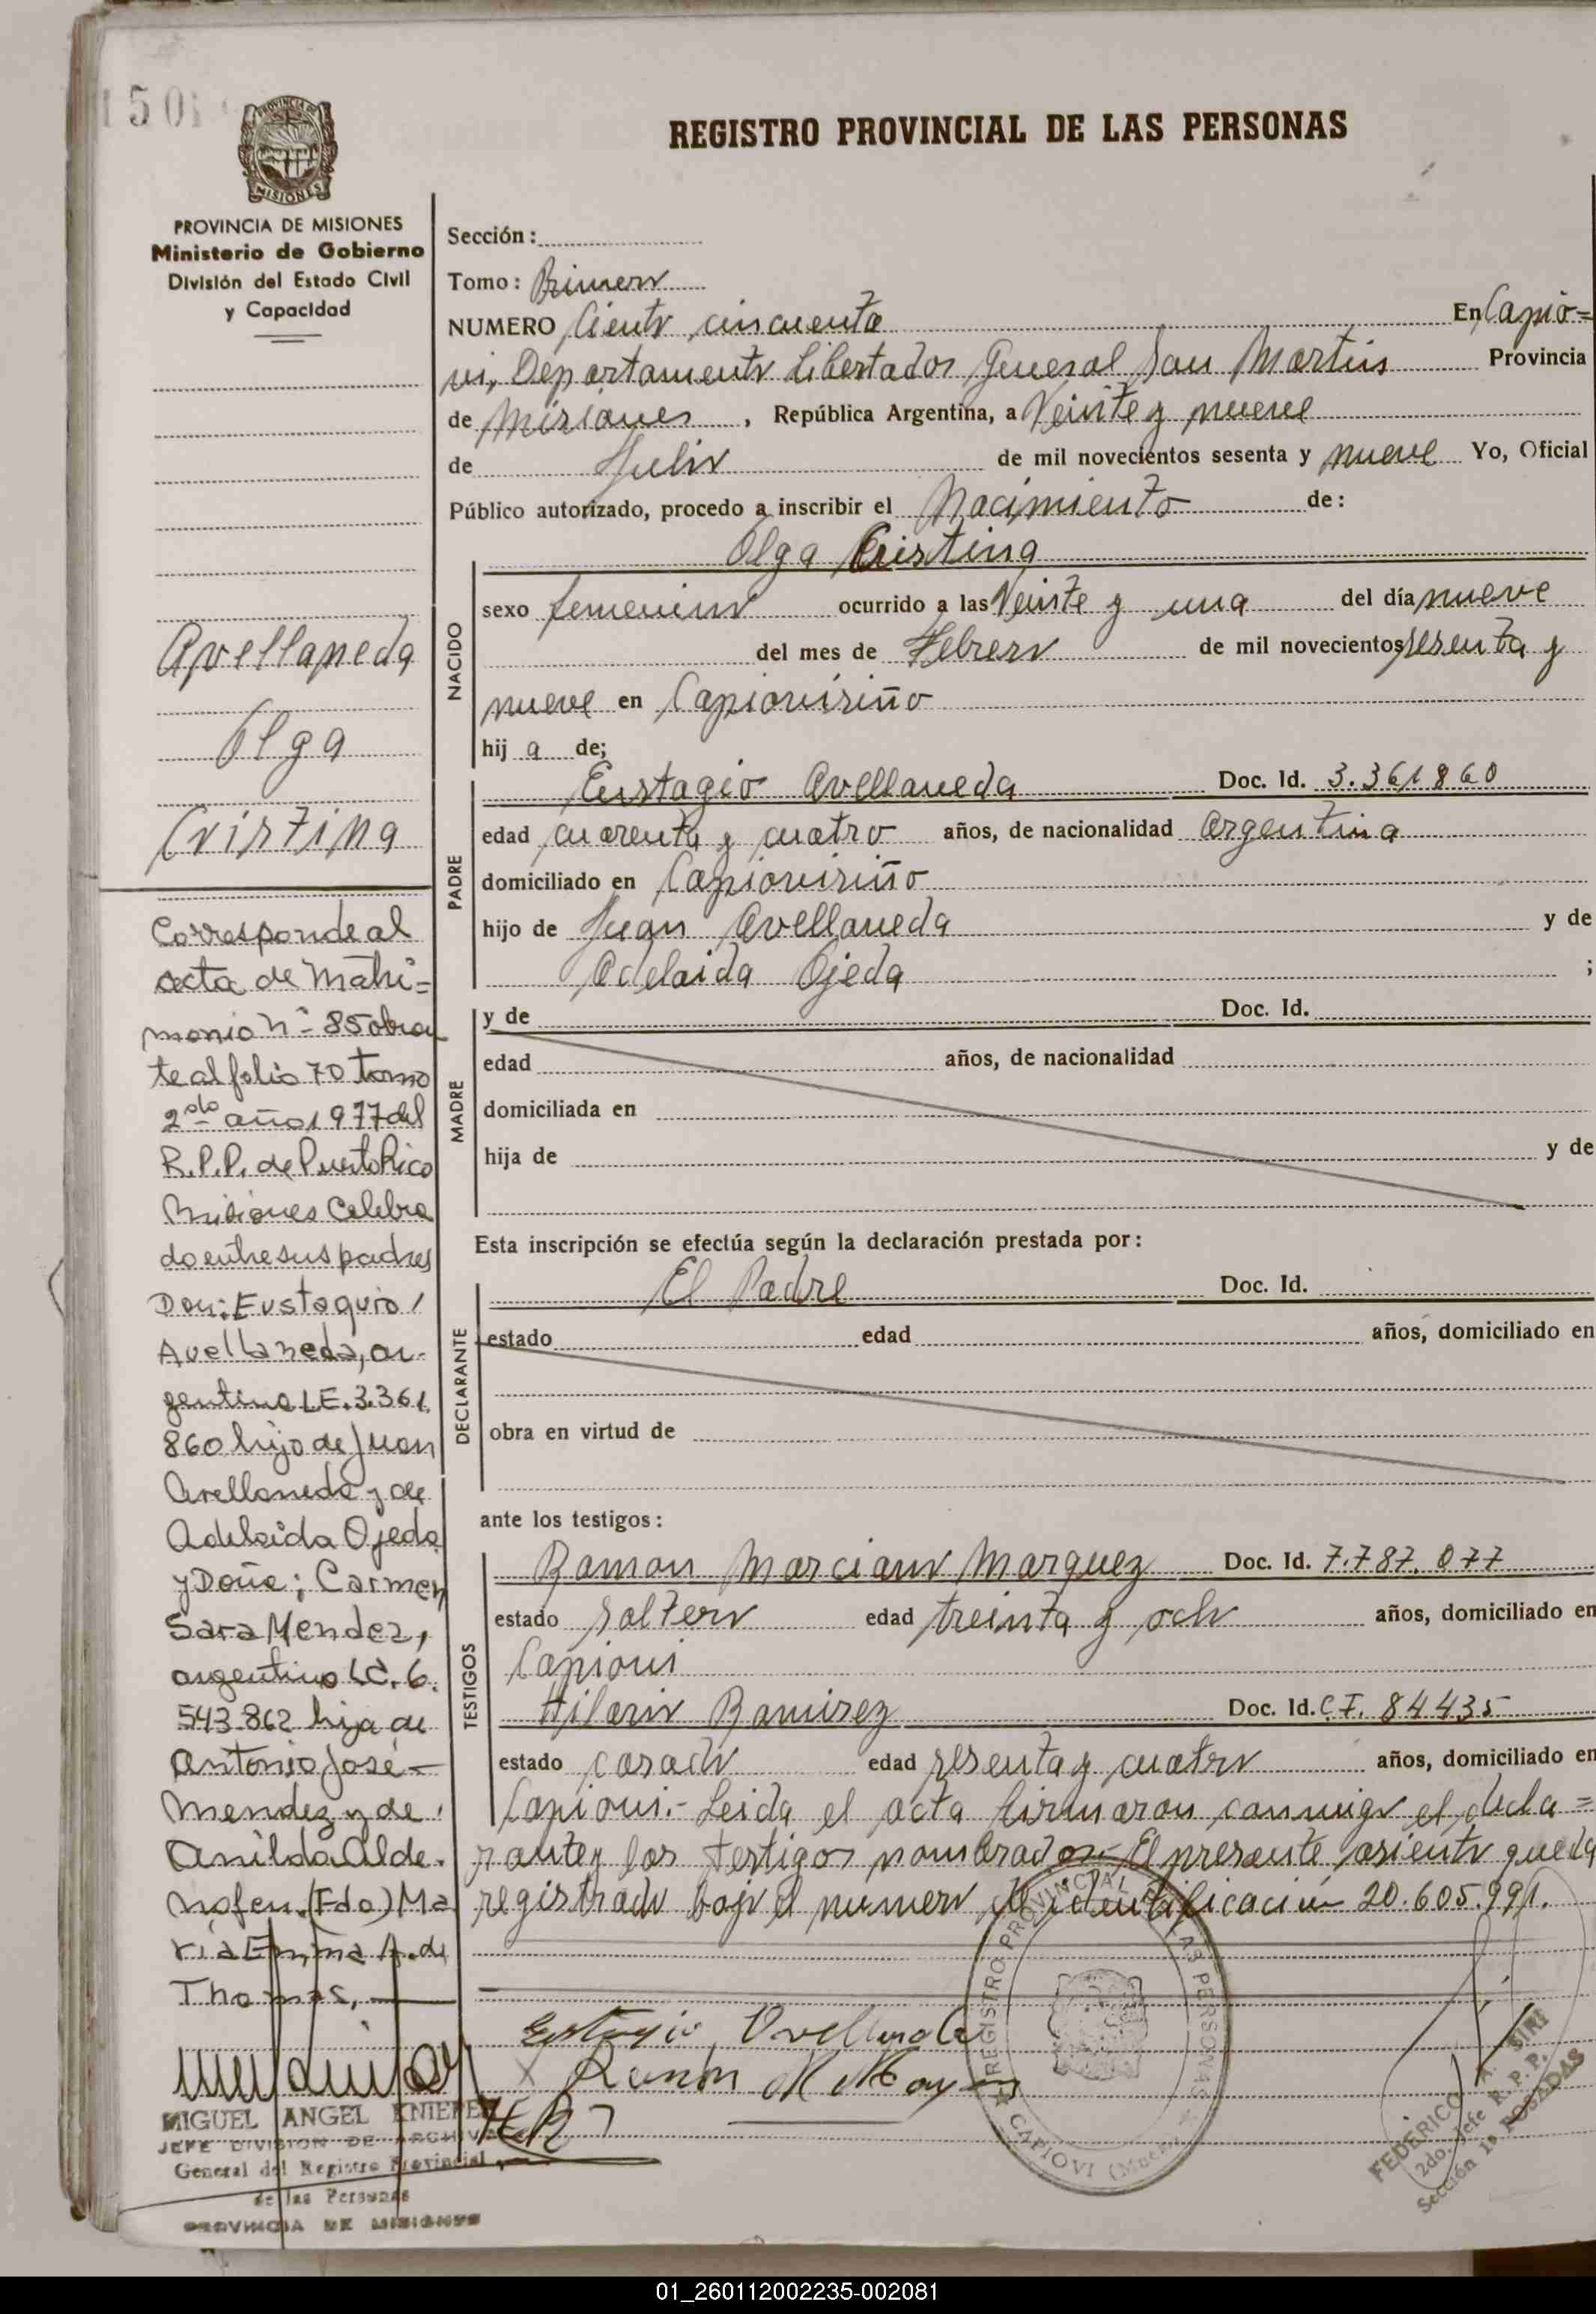 150
PROVINCIA DE
MISIONES
REGISTRO PROVINCIAL DE LAS PERSONAS
PROVINCIA DE MISIONES
Ministerio de Gobierno
División del Estado Civil
y Capacidad
Avellaneda
Olga
Cristina
Corresponde al
acta de Matri=
monio Nº 85 obran
te al folio 70 tomo
2do año 1977 del
R.P.P. de Puerto Rico
Misiones Celebra
do entre sus padres
Don: Eustaquio
Avellaneda, ar-
gentino L.E. 3.361.
860 hijo de Juan
Avellaneda y de
Adelaida Ojeda
y Doña; Carmen
Sara Mendez,
argentina L.C. 6.
543.862 hija de
Antonio José
Mendez y de
Anilda Alde.
(Fdo) Ma
ría Emma A. de
Thomas,
MIGUEL ANGEL KNIEPE
JEFE DIVISION DE ARCHIVO
General del Registro Provincial
de las Personas
PROVINCIA DE MISIONES
Sección:
Tomo: Primero
NUMERO Ciento cincuenta En Capio=
vi, Departamento Libertador General San Martin Provincia
de Misiones, República Argentina, a Veinte y nueve
de Julio de mil novecientos sesenta y nueve Yo, Oficial
Público autorizado, procedo a inscribir el Nacimiento de:
Olga Cristina
NACIDO
sexo femenino ocurrido a las Veinte y una del día nueve
del mes de Febrero de mil novecientos sesenta y
nueve en Capiovisiño
hij a de;
PADRE
Eustagio Avellaneda Doc. Id. 3.361860
edad cuarenta y cuatro años, de nacionalidad Argentina
domiciliado en Capiovisiño
hijo de Juan Avellaneda y de
Adelaida Ojeda ;
MADRE
y de Doc. Id.
edad años, de nacionalidad
domiciliada en
hija de y de
Esta inscripción se efectúa según la declaración prestada por:
DECLARANTE
El Padre Doc. Id.
estado edad años, domiciliado en
obra en virtud de
ante los testigos:
TESTIGOS
Ramon Marciano Marquez Doc. Id. 7.787.077
estado soltero edad treinta y ocho años, domiciliado en
Capiovi
Hilario Ramirez Doc. Id. C.I. 84435
estado casado edad sesenta y cuatro años, domiciliado en
Capiovi.- Leida el acta firmaron conmigo el decla=
rante y los testigos nombrados.- El presente asiento queda
registrado bajo el numero de identificación 20.605.991.
Eustagio Avellaneda
X Ramón M Ma
H R
REGISTRO PROVINCIAL DE LAS PERSONAS
CAPIOVI
FEDERICO A. SIRI
2do. Jefe R. P. P.
Sección 1a POSADAS
01_260112002235-002081